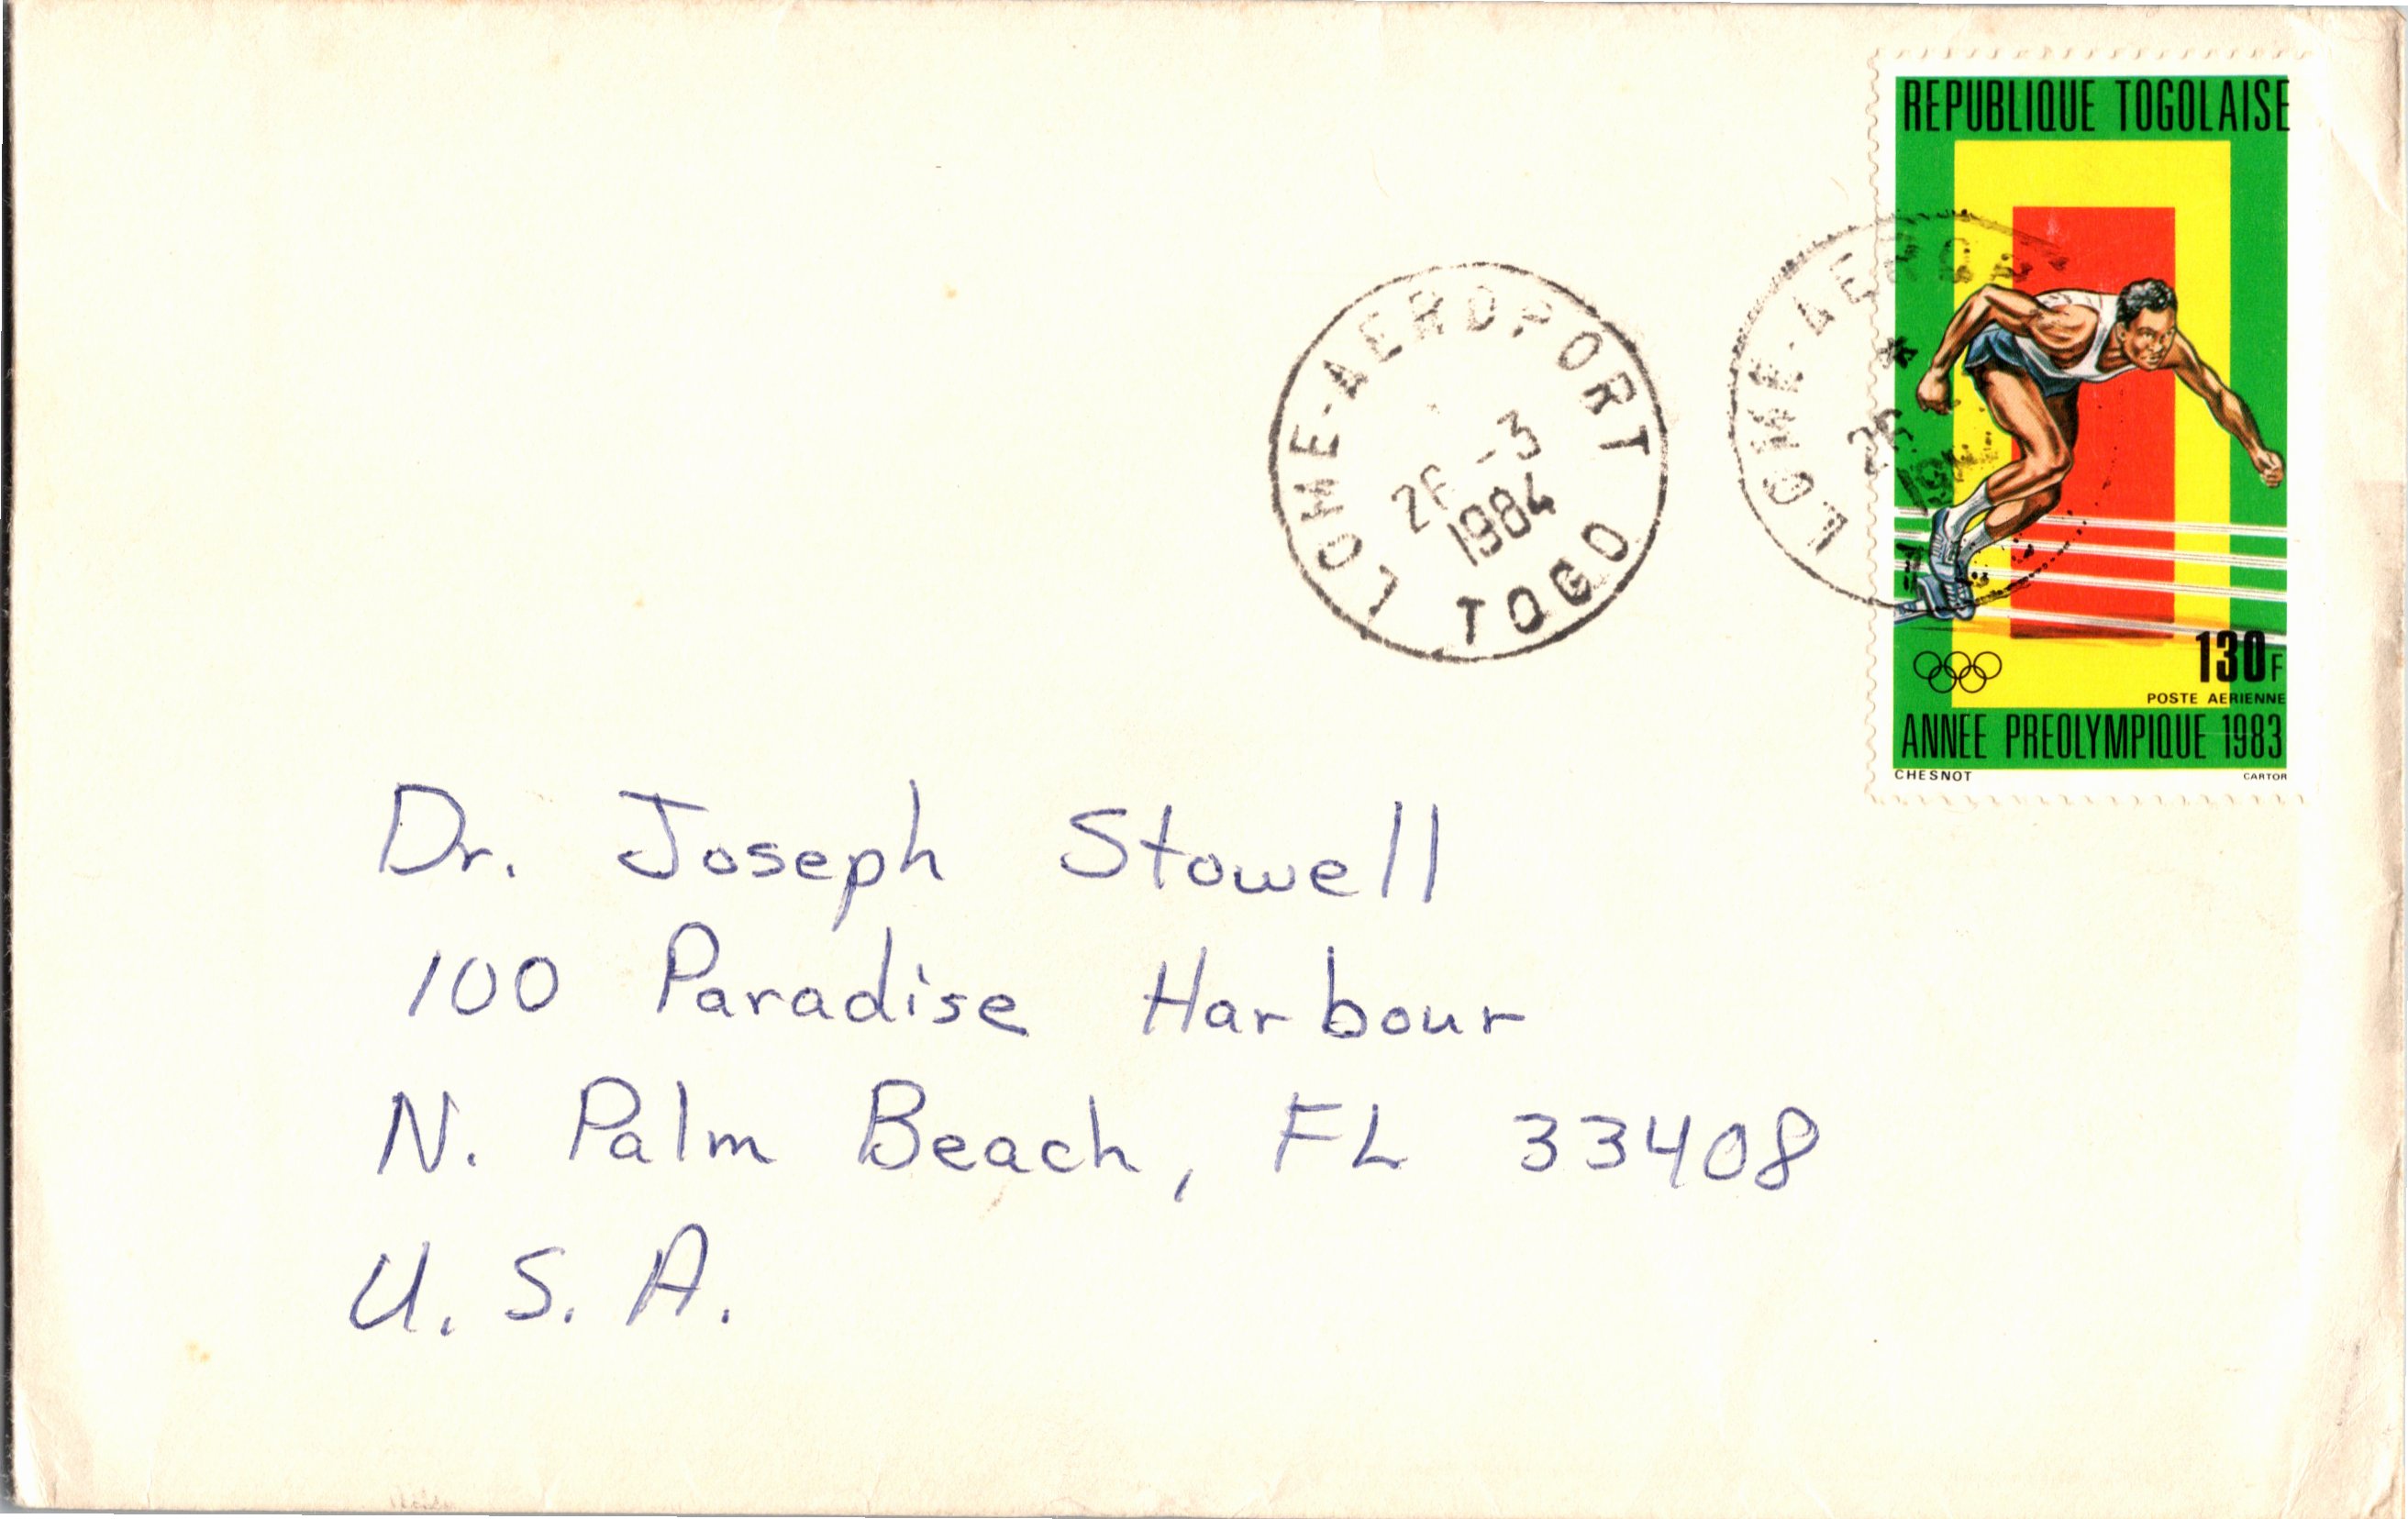 REPUBLIQUE TOGOLAISE
LOME-AEROPORT
-3
1984
TOGO
LOME-AERO
130F
POSTE AERIENNE
ANNEE PREOLYMPIQUE 1983
CHESNOT CARTOR
Dr. Joseph Stowell
100 Paradise Harbour
N. Palm Beach, FL 33408
U. S. A.